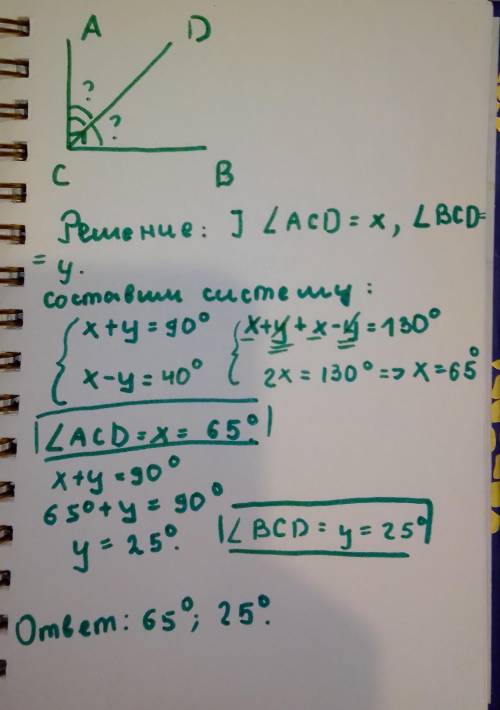 A D
? ?
C B
Решение: ] ∠ACD = x, ∠BCD=
= y.
составим систему:
{ x+y=90°
x-y=40°
{ x+y+x-y=130°
2x=130° => x=65°
∠ACD=x= 65°.
x+y=90°
65°+y=90°
y=25°.
∠BCD=y=25°
Ответ: 65°; 25°.